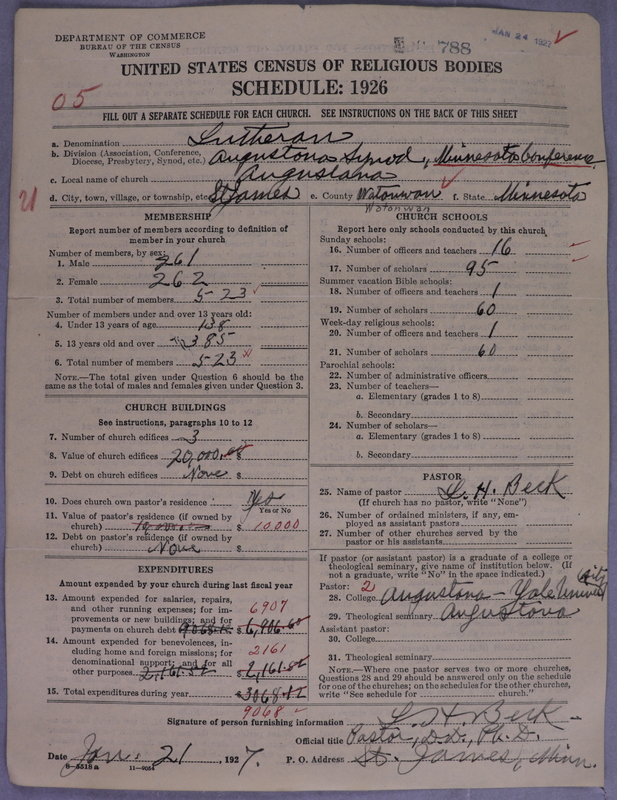 DEPARTMENT OF COMMERCE
BUREAU OF THE CENSUS
WASHINGTON
788
JAN 24 1927
UNITED STATES CENSUS OF RELIGIOUS BODIES
SCHEDULE: 1926
05
FILL OUT A SEPARATE SCHEDULE FOR EACH CHURCH. SEE INSTRUCTIONS ON THE BACK OF THIS SHEET
a. Denomination Lutheran
b. Division (Association, Conference, Diocese, Presbytery, Synod, etc.) Augustana Synod, Minnesota Conference
c. Local name of church Augustana
21
d. City, town, village, or township, etc. St James e. County Watonwan f. State Minnesota
Watonwan
MEMBERSHIP
Report number of members according to definition of
member in your church
Number of members, by sex:
1. Male 261
2. Female 262
3. Total number of members 523
Number of members under and over 13 years old:
4. Under 13 years of age 138
5. 13 years old and over 385
6. Total number of members 523
NOTE.—The total given under Question 6 should be the
same as the total of males and females given under Question 3.
CHURCH BUILDINGS
See instructions, paragraphs 10 to 12
7. Number of church edifices 3
8. Value of church edifices 20,000.00 $
9. Debt on church edifices None $
10. Does church own pastor's residence? Yes
Yes or No
11. Value of pastor's residence (if owned by
church) 10,000.00 $ 10.000
12. Debt on pastor's residence (if owned by
church) None $
EXPENDITURES
Amount expended by your church during last fiscal year
13. Amount expended for salaries, repairs,
and other running expenses; for im-
provements or new buildings; and for
payments on church debt 9068.12 $ 6,906.60
6907
14. Amount expended for benevolences, in-
cluding home and foreign missions; for
denominational support; and for all
other purposes 2,161.52 $ 2,161.52
2161
15. Total expenditures during year 9068.12
9068
CHURCH SCHOOLS
Report here only schools conducted by this church
Sunday schools:
16. Number of officers and teachers 16
17. Number of scholars 95
Summer vacation Bible schools:
18. Number of officers and teachers 1
19. Number of scholars 60
Week-day religious schools:
20. Number of officers and teachers 1
21. Number of scholars 60
Parochial schools:
22. Number of administrative officers
23. Number of teachers—
a. Elementary (grades 1 to 8)
b. Secondary
24. Number of scholars—
a. Elementary (grades 1 to 8)
b. Secondary
PASTOR
25. Name of pastor L. H. Beck
(If church has no pastor, write "None")
26. Number of ordained ministers, if any, em-
ployed as assistant pastors
27. Number of other churches served by the
pastor or his assistants
If pastor (or assistant pastor) is a graduate of a college or
theological seminary, give name of institution below. (If
not a graduate, write "No" in the space indicated.)
Pastor: 2
28. College Augustana – Yale University
29. Theological seminary Augustana
Assistant pastor:
30. College
31. Theological seminary
NOTE.—Where one pastor serves two or more churches,
Questions 28 and 29 should be answered only on the schedule
for one of the churches; on the schedules for the other churches,
write "See schedule for church."
Signature of person furnishing information L. H. Beck
Official title Pastor, D.D., Ph.D.
Date Jan. 21, 1927. P. O. Address St. James, Minn.
8-5518a 11-9054